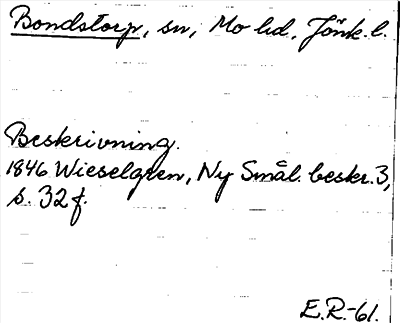 Bondstorp, sn, Mo hd, Jönk. l.
Beskrivning.
1846 Wieselgren, Ny Smål. beskr. 3,
s. 32 f.
E.R.-61.